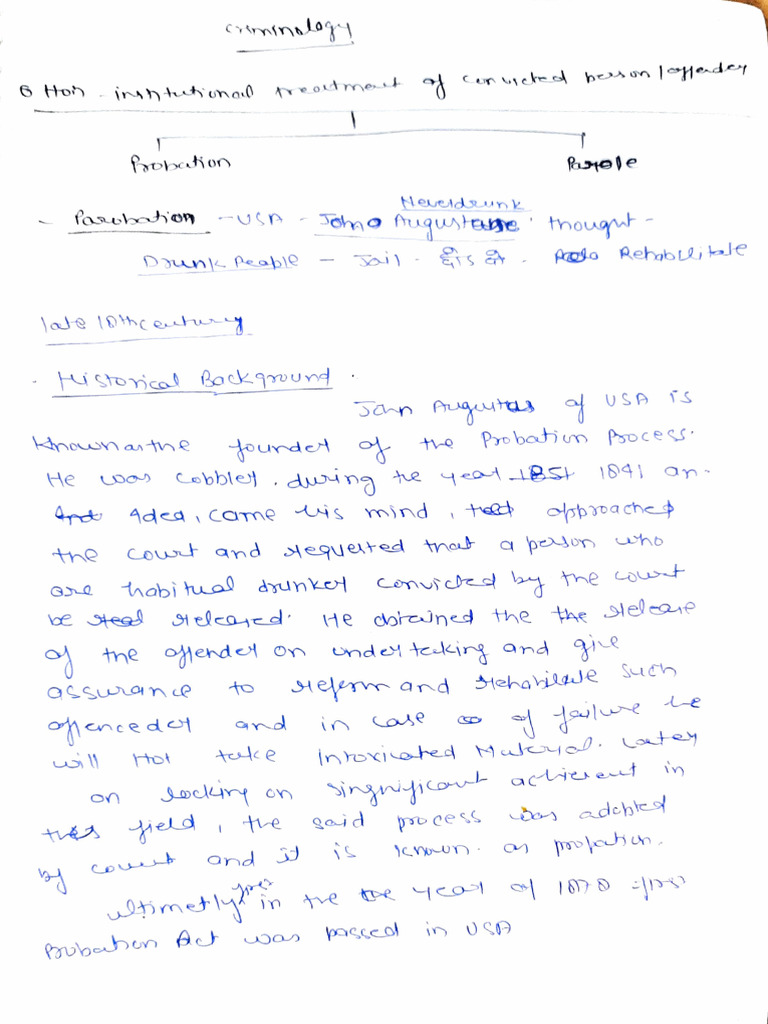 Criminology
Non-institutional treatment of convicted person/offender
Probation Parole
- Parobation - USA - John Augustus thought -
Neverdrunk
Drunk People - Jail - - Rehabilitate
late 18th century
. Historical Background .
John Augustus of USA is
Known as the founder of the Probation Process.
He was cobbler. during the year 1851 1841 an
Idea, came his mind, approached
the court and requested that a person who
are habitual drunker convicted by the court
be released. He obtained the the release
of the offender on undertaking and give
assurance to reform and rehabilitate such
offenceder and in case of failure he
will not take Intoxicated Material. Later
on looking on singnificant achieent in
this field, the said process was adobted
by court and it is known as probation.
ultimetly in the year of 1878 first
Probation Act was passed in USA